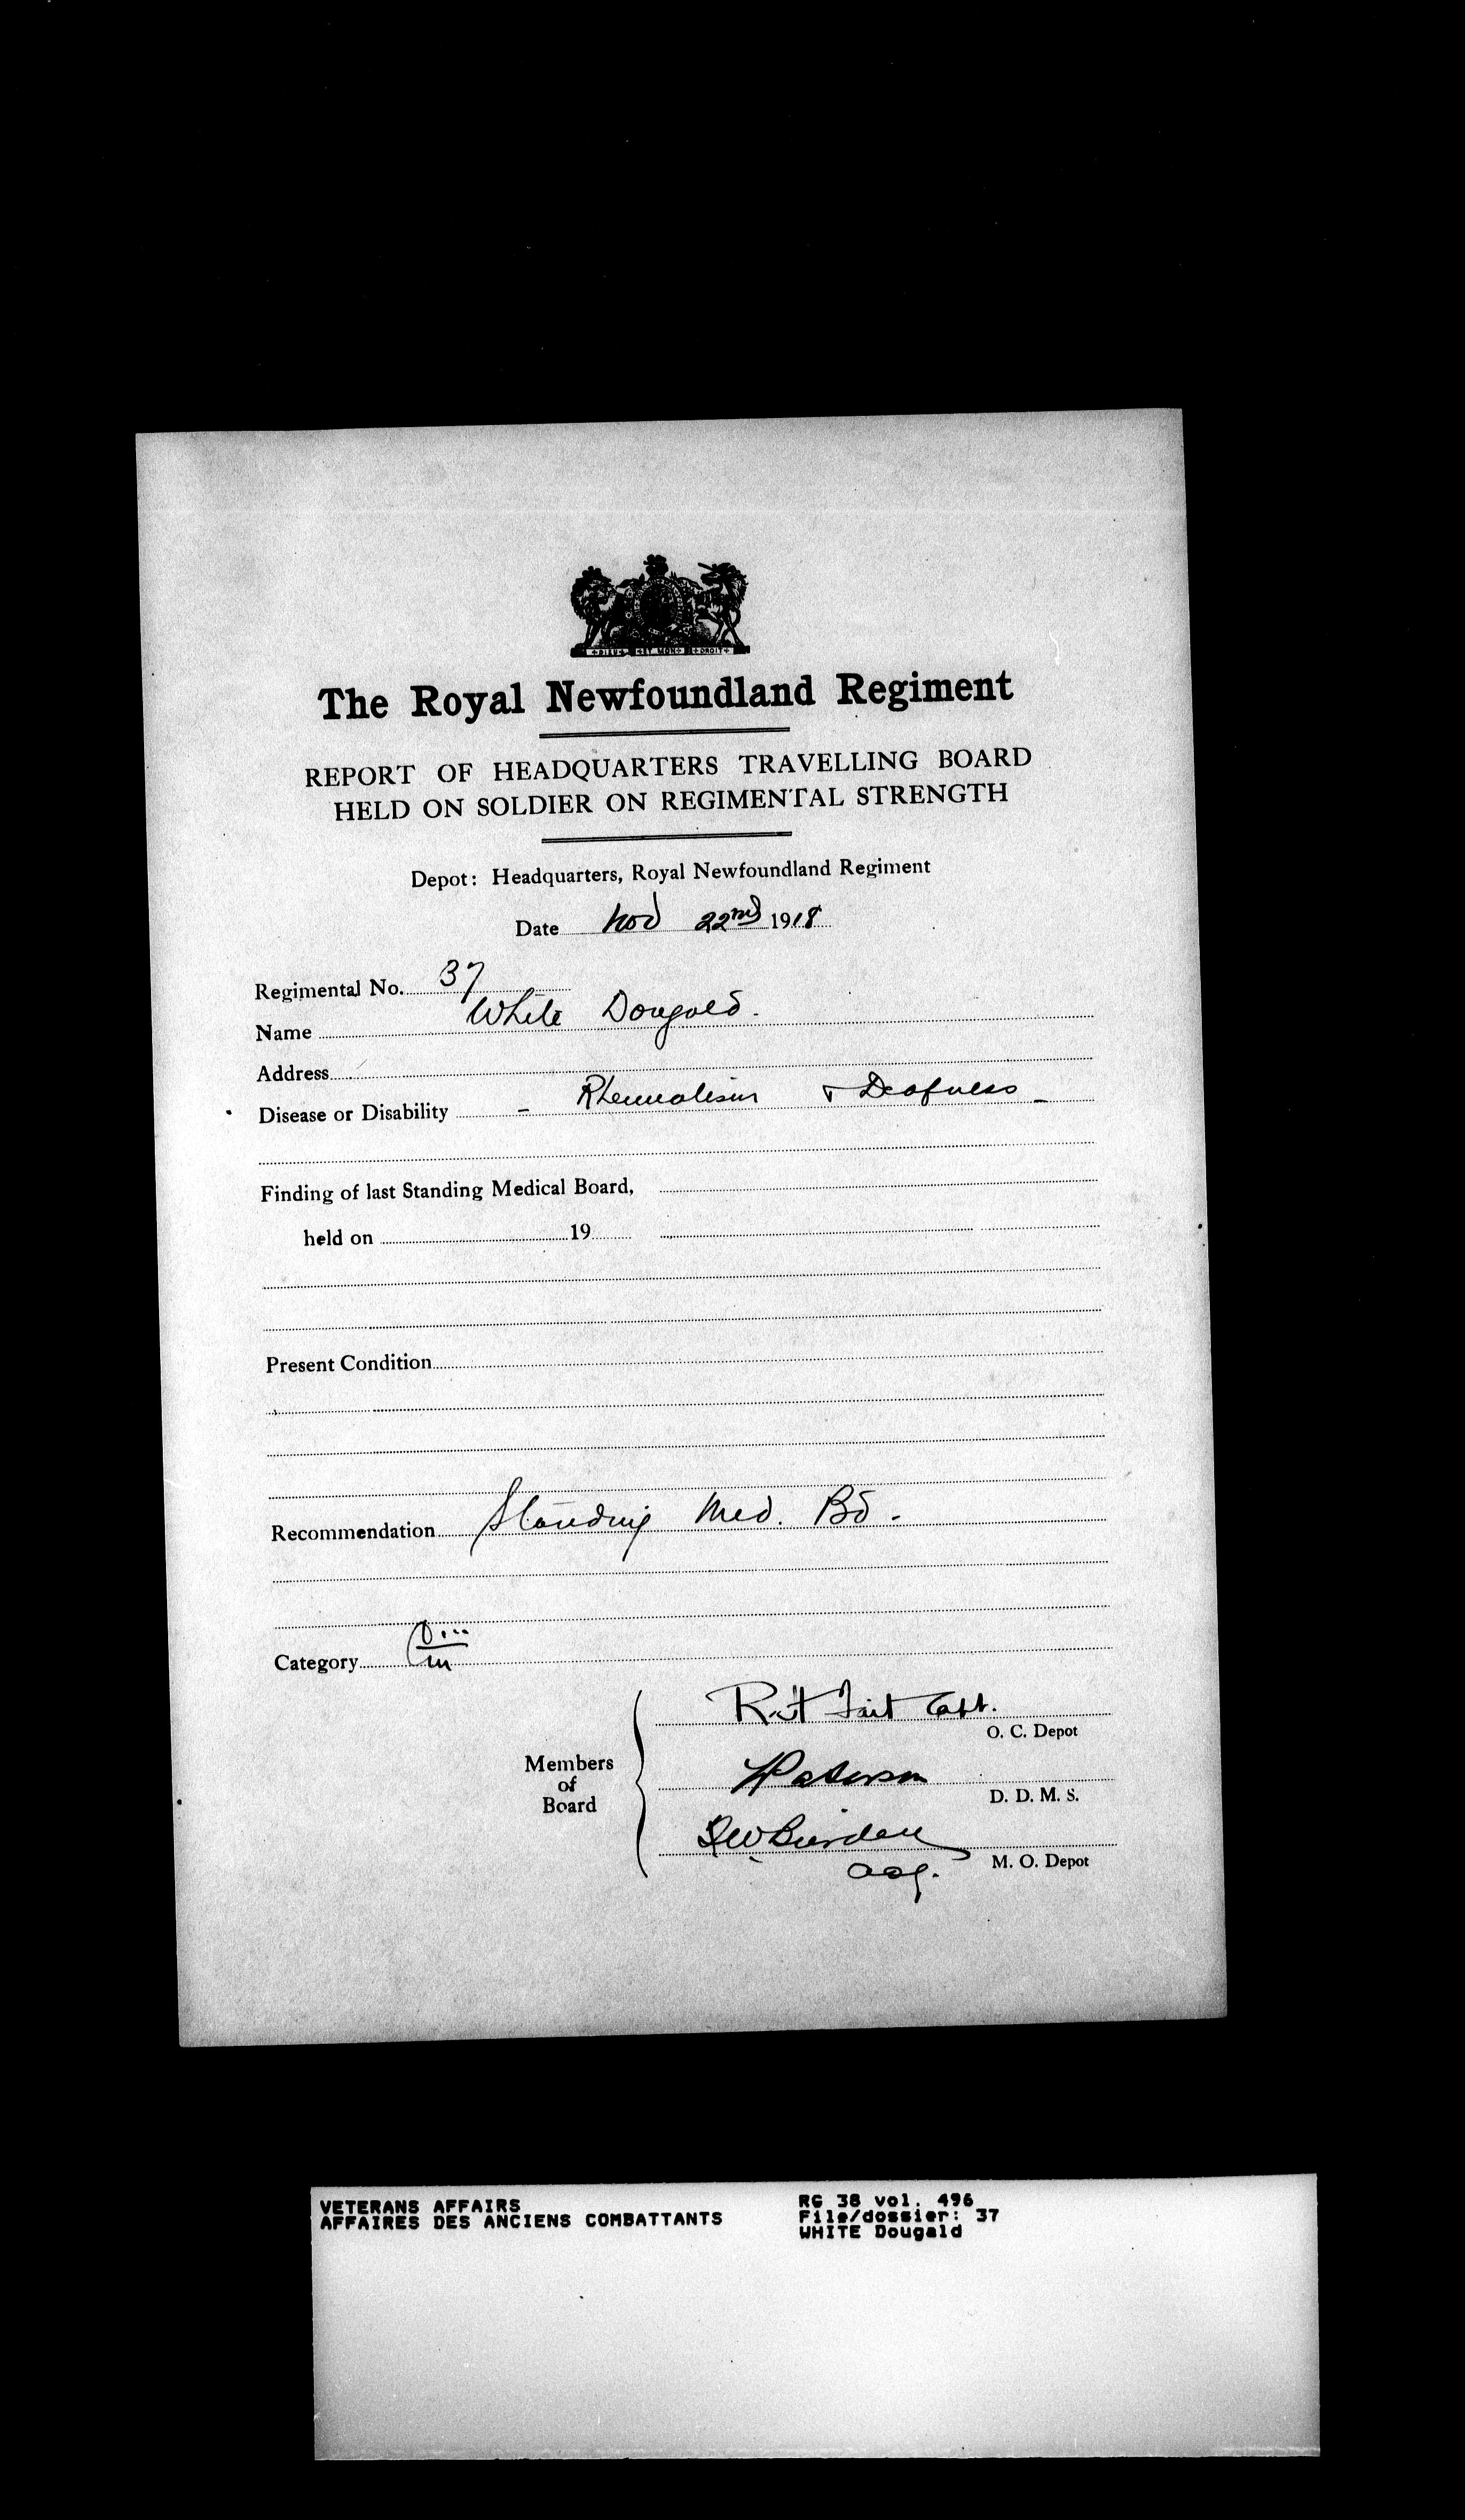 DIEU ET MON DROIT
The Royal Newfoundland Regiment
REPORT OF HEADQUARTERS TRAVELLING BOARD
HELD ON SOLDIER ON REGIMENTAL STRENGTH
Depot: Headquarters, Royal Newfoundland Regiment
Date Nov 22nd 1918
Regimental No. 37
Name White Dougald.
Address
Disease or Disability - Rheumatism & Deafness -
Finding of last Standing Medical Board,
held on 19
Present Condition
Recommendation Standing Med. Bd.
Category
Tait Capt.
O. C. Depot
Members
of
Board
Paterson
D. D. M. S.
Burden
M. O. Depot
VETERANS AFFAIRS
AFFAIRES DES ANCIENS COMBATTANTS
RG 38 vol. 496
File/dossier: 37
WHITE Dougald